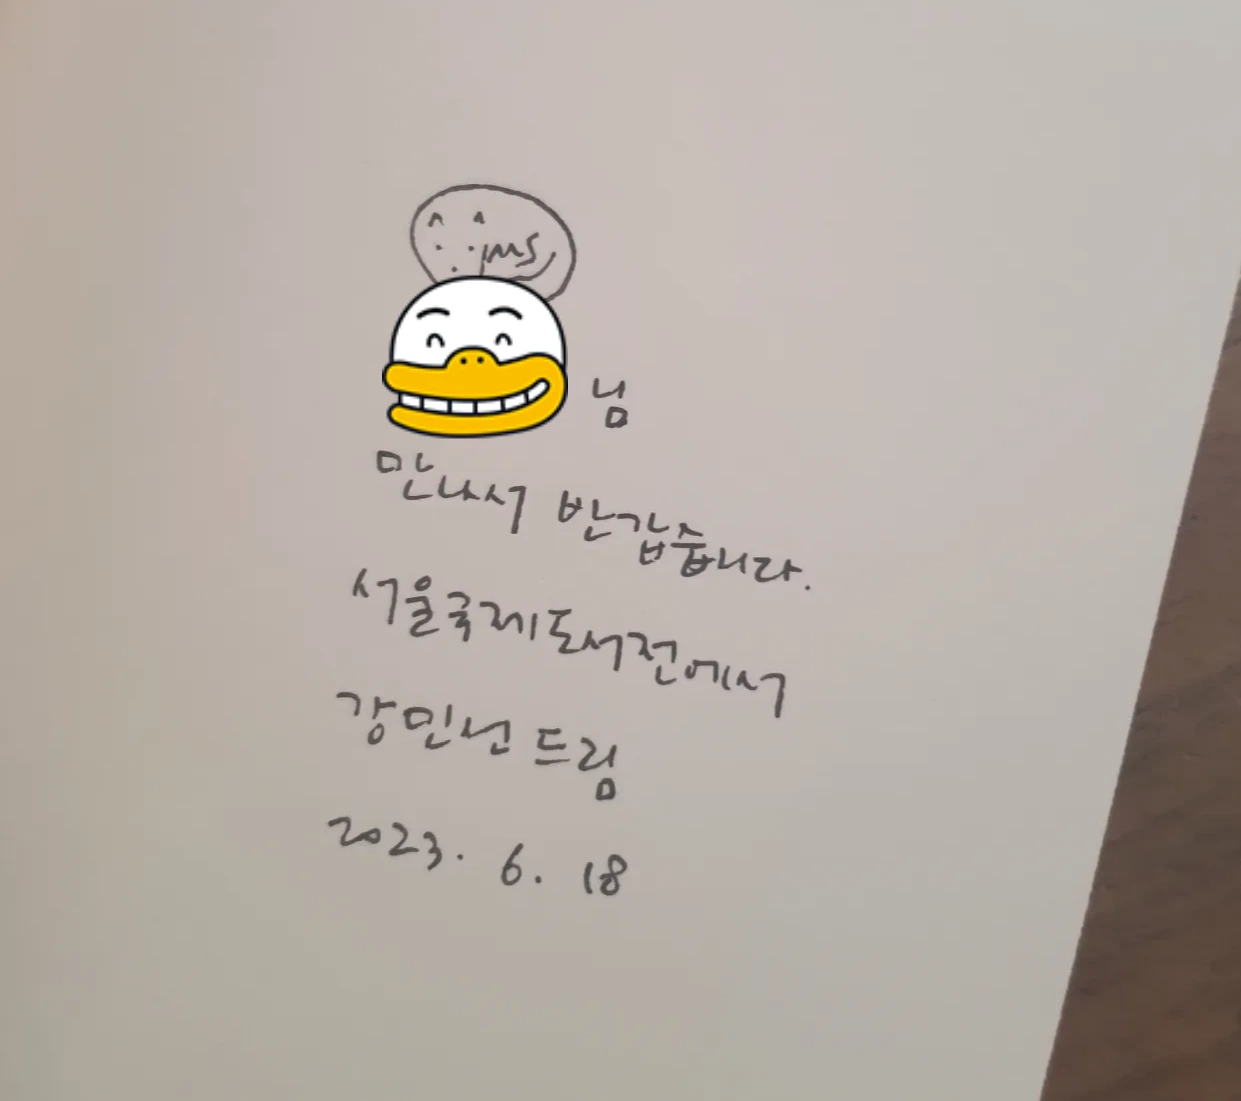 ms
님
만나서 반갑습니다.
서울국제도서전에서
강민선 드림
2023. 6. 18